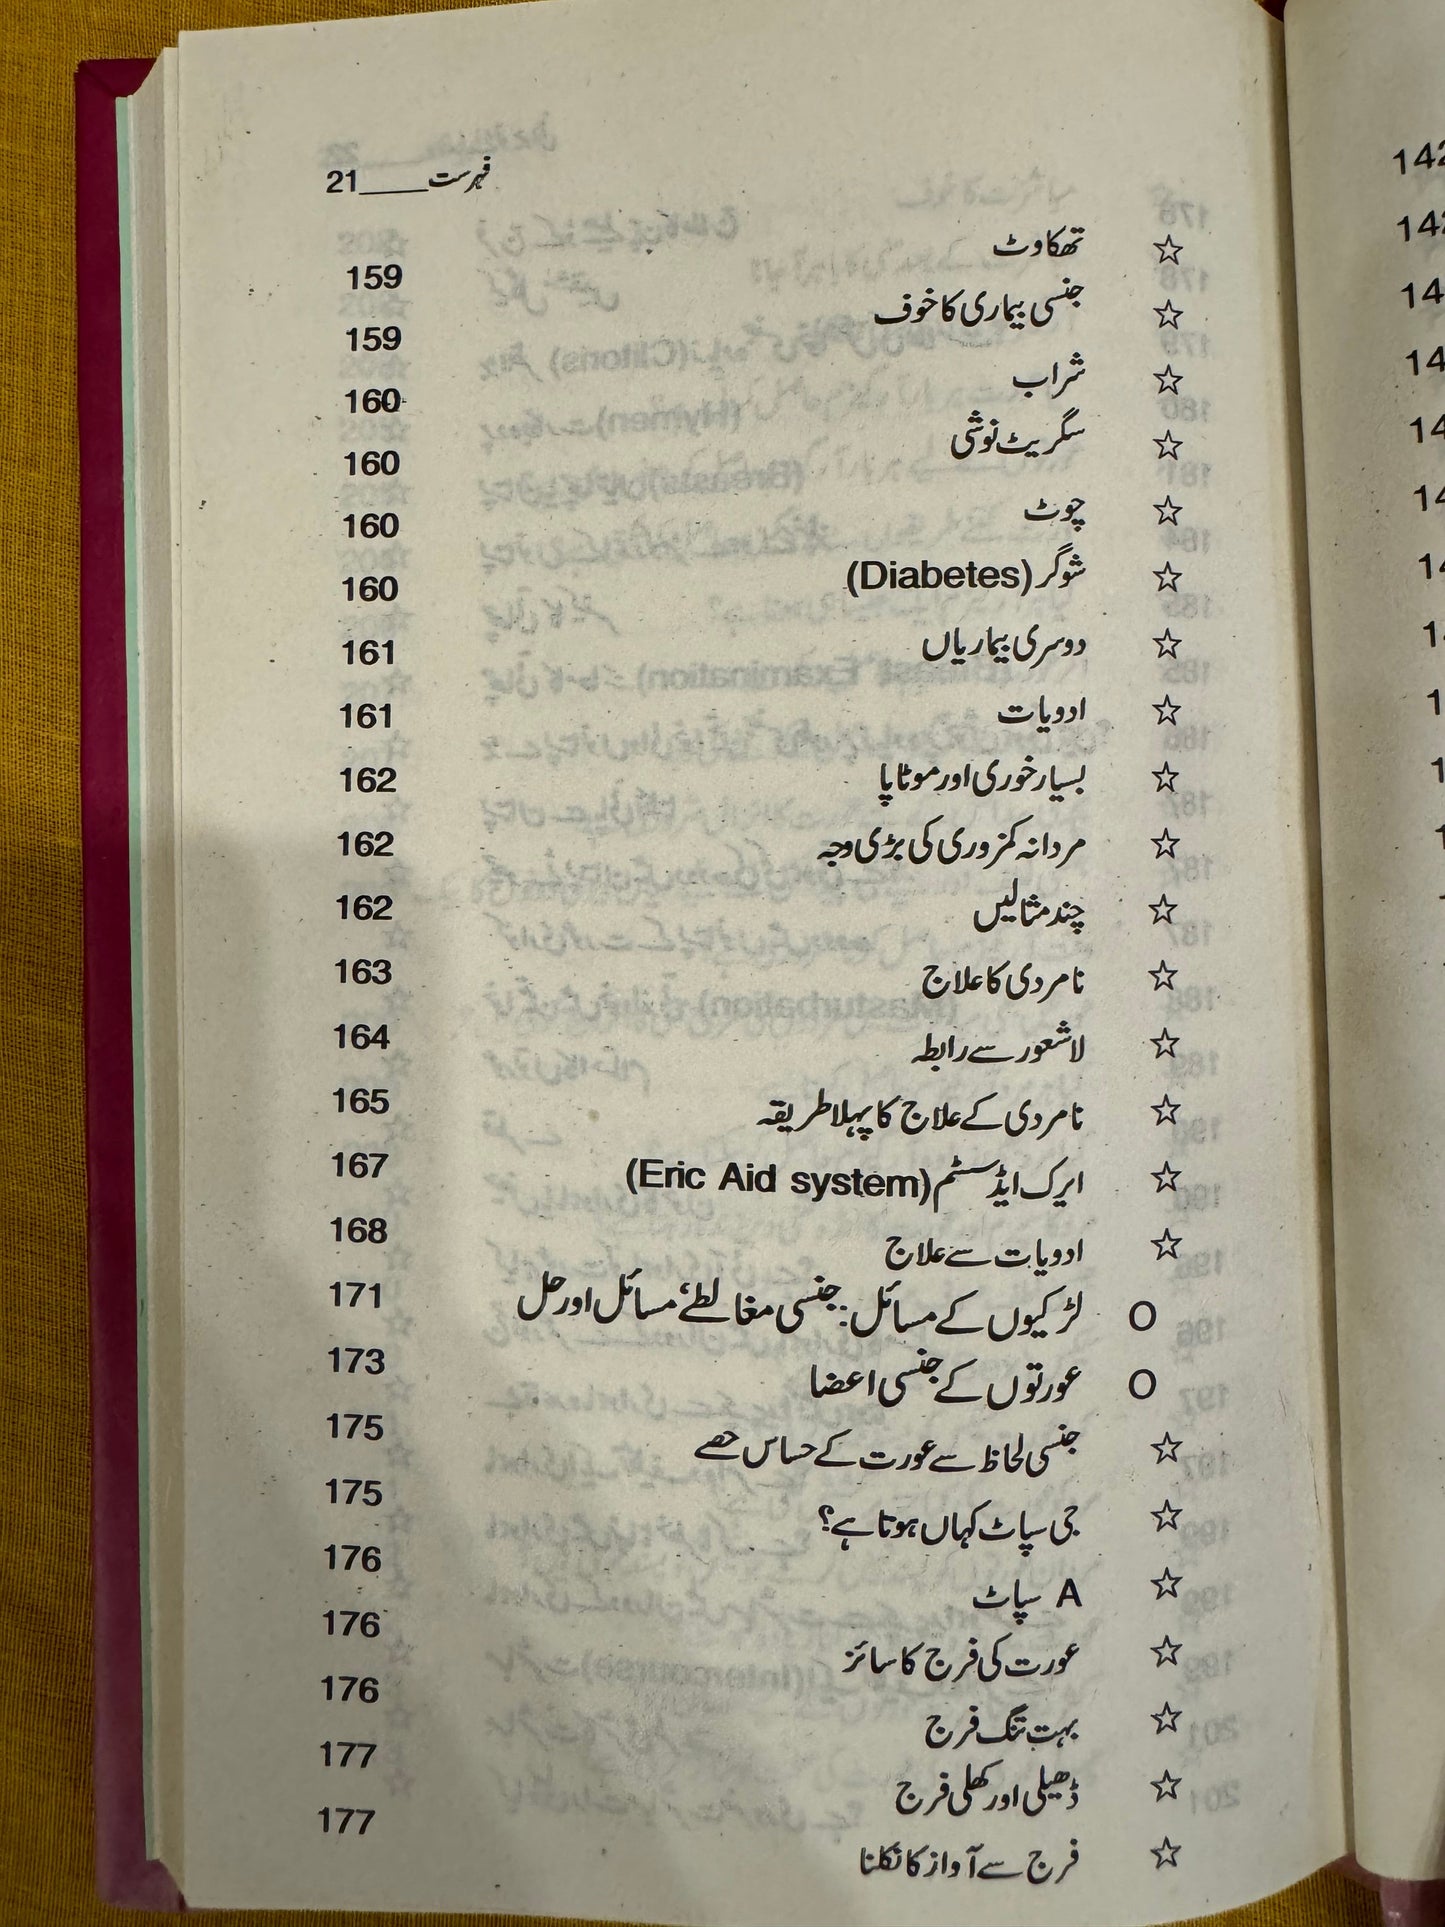 فہرست____21
☆ تھکاوٹ 159
☆ جنسی بیماری کا خوف 159
☆ شراب 160
☆ سگریٹ نوشی 160
☆ چوٹ 160
☆ شوگر (Diabetes) 160
☆ دوسری بیماریاں 161
☆ ادویات 161
☆ بسیار خوری اور موٹاپا 162
☆ مردانہ کمزوری کی بڑی وجہ 162
☆ چند مثالیں 162
☆ نامردی کا علاج 163
☆ لاشعور سے رابطہ 164
☆ نامردی کے علاج کا پہلا طریقہ 165
☆ ایرک ایڈ سسٹم (Eric Aid system) 167
☆ ادویات سے علاج 168
O لڑکیوں کے مسائل: جنسی مغالطے، مسائل اور حل 171
O عورتوں کے جنسی اعضا 173
☆ جنسی لحاظ سے عورت کے حساس حصے 175
☆ جی سپاٹ کہاں ہوتا ہے؟ 175
☆ A سپاٹ 176
☆ عورت کی فرج کا سائز 176
☆ بہت تنگ فرج 176
☆ ڈھیلی اور کھلی فرج 177
☆ فرج سے آواز کا نکلنا 177